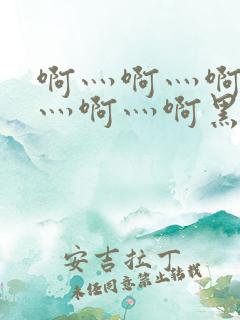 啊灬啊灬啊
灬啊灬啊黑
安吉拉丁
未经同意禁止转载